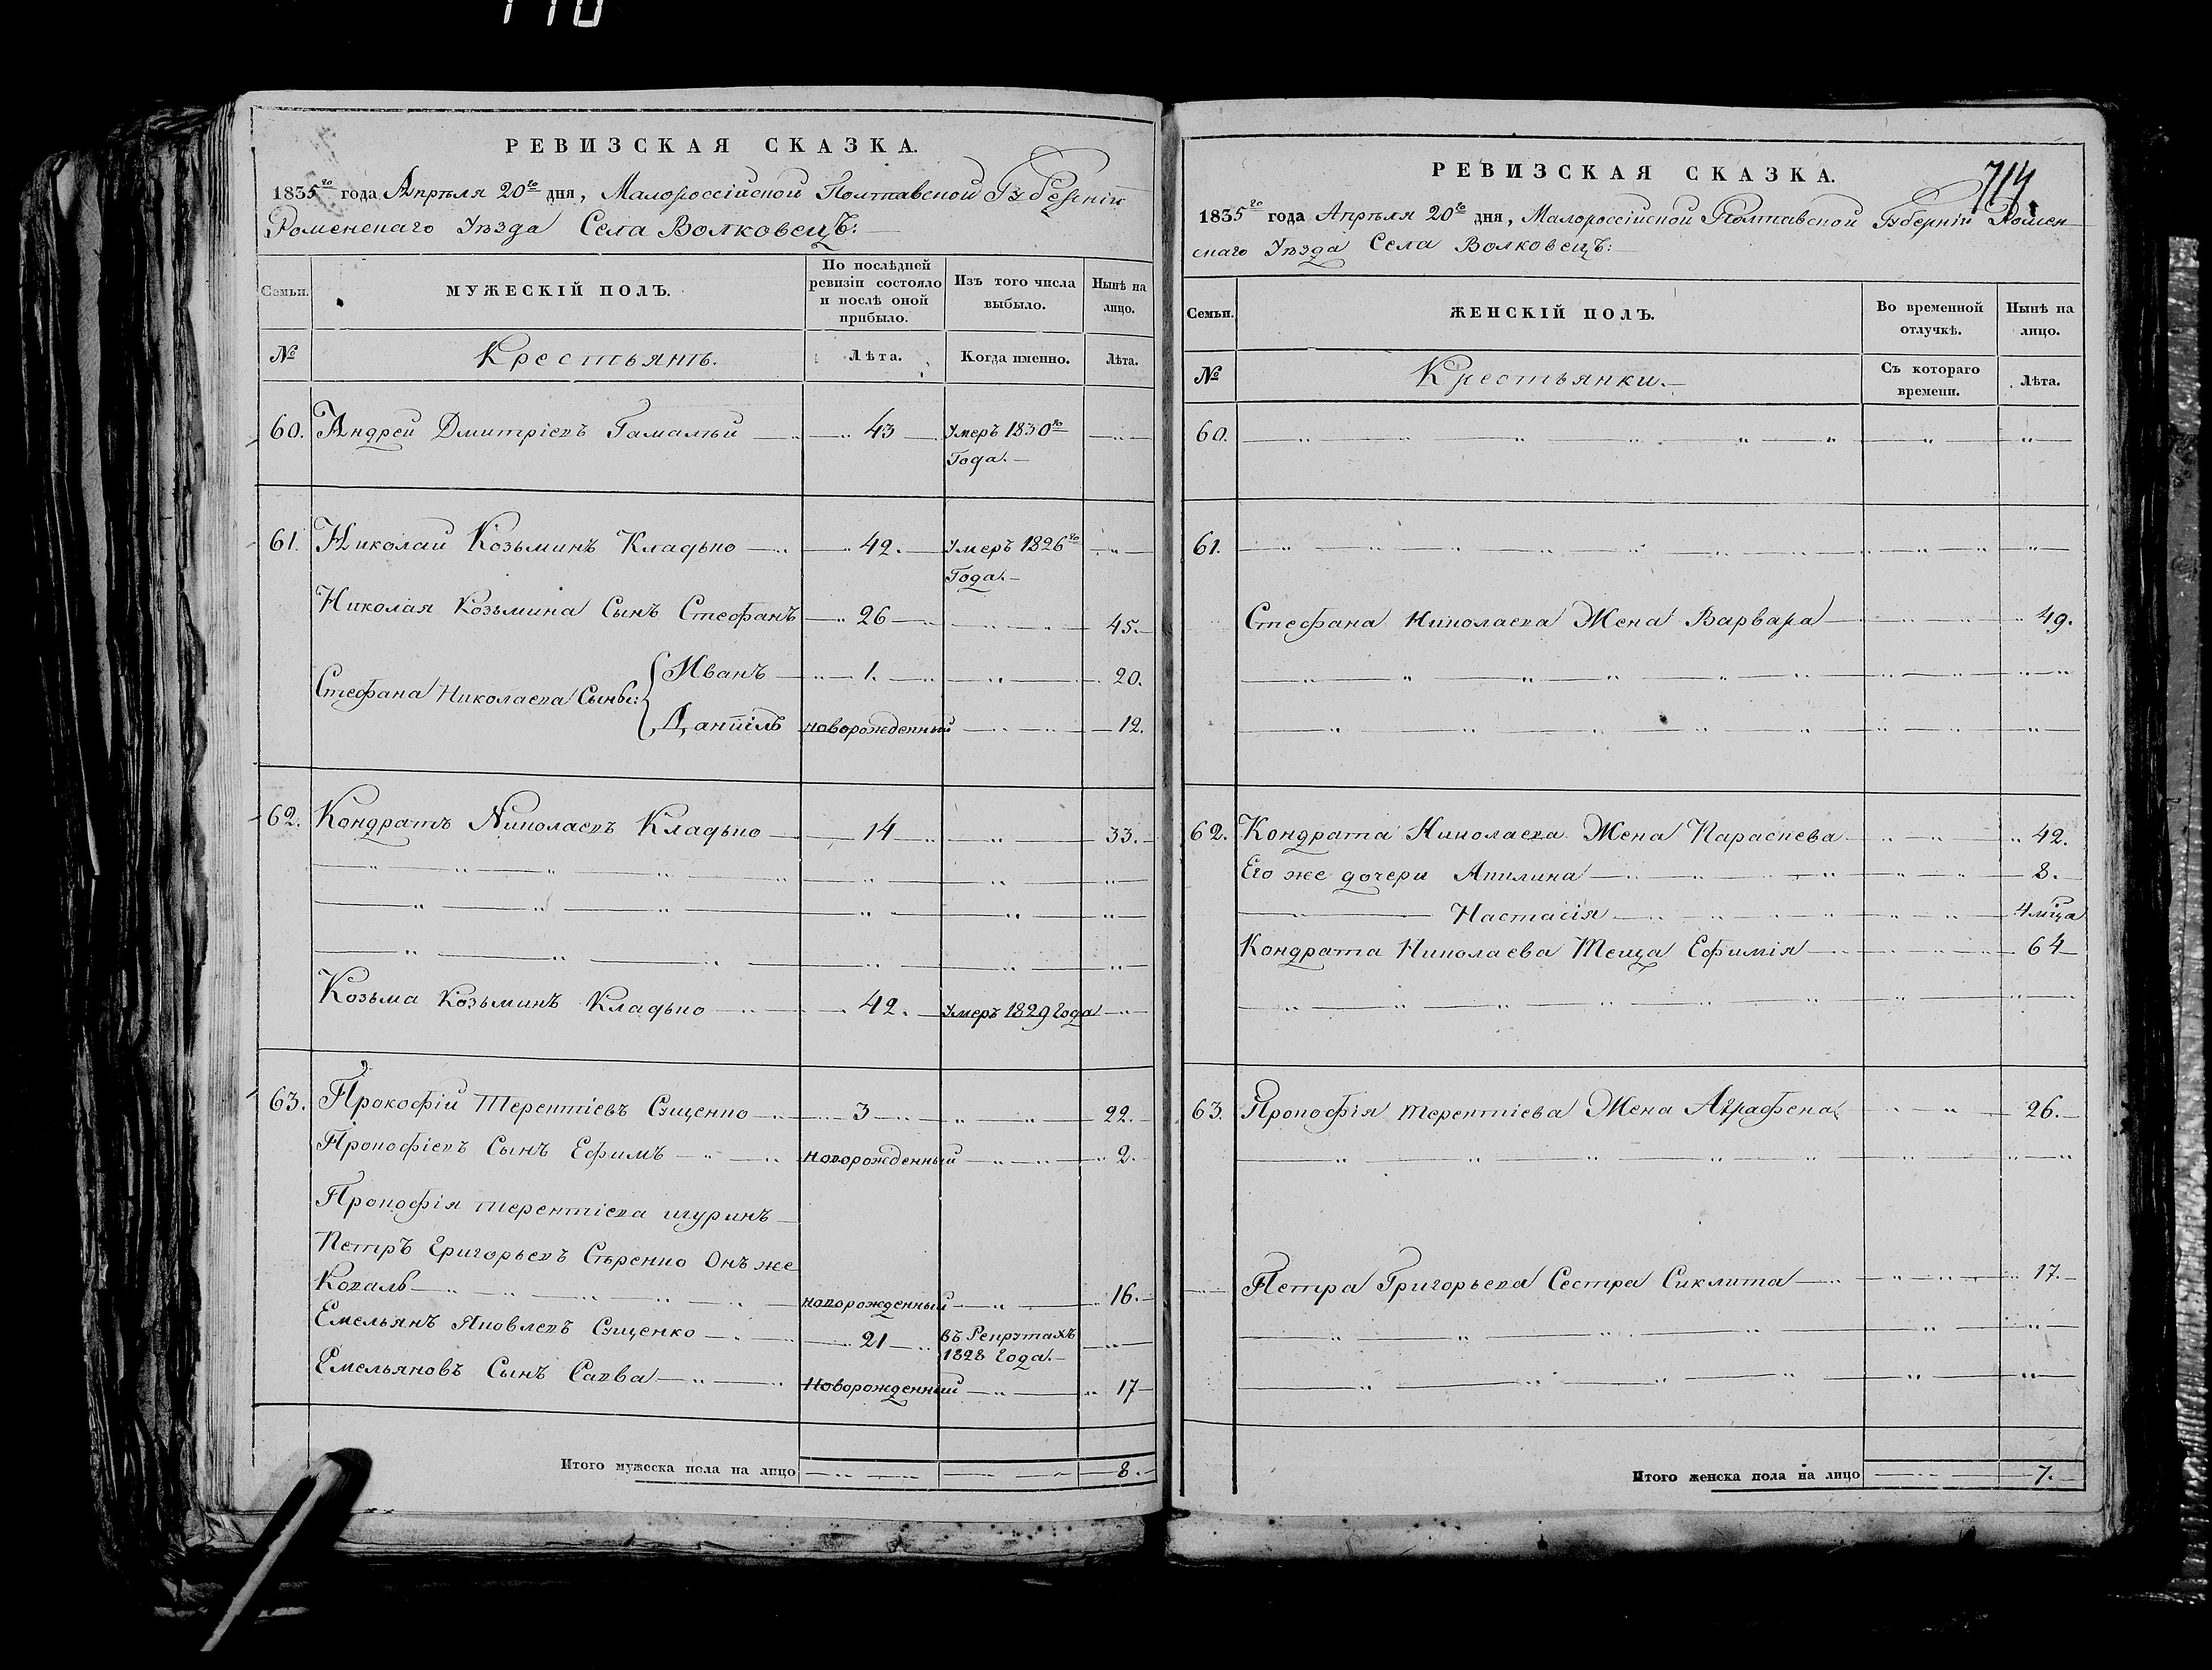 110
РЕВИЗСКАЯ СКАЗКА.
1835го года Апрѣля 20го дня, Малороссійской Полтавской Губерніи
Роменскаго Уѣзда Села Волковецъ:
Семьи.
МУЖЕСКІЙ ПОЛЪ.
По послѣдней ревизіи состояло и послѣ оной прибыло.
Изъ того числа выбыло.
Нынѣ на лицо.
№
Крестьянъ.
Лѣта.
Когда именно.
Лѣта.
60. Андрей Дмитріевъ Гамалѣй 43 Умеръ 1830го
Года.
61. Николай Козьминъ Кладько 42. Умеръ 1826го
Года.
Николая Козьмина Сынъ Стефанъ 26 45.
Стефана Николаева Сыны: Иванъ 1. 20.
Даніилъ новорожденный 12.
62. Кондратъ Николаевъ Кладько 14 33.
Козьма Козьминъ Кладько 42. Умеръ 1829 Года
63. Прокофій Терентіевъ Сященко 3 22.
Прокофіевъ Сынъ Ефимъ новорожденный 2.
Прокофія Терентіева шуринъ
Петръ Григорьевъ Сѣренко Онъ же
Коваль новорожденный 16.
Емельянъ Яковлевъ Сященко 21 въ Рекрутахъ
1828 Года.
Емельяновъ Сынъ Савва Новорожденный 17
Итого мужеска пола на лицо 8.
РЕВИЗСКАЯ СКАЗКА.
714
1835го года Апрѣля 20го дня, Малороссійской Полтавской Губерніи Ромен
скаго Уѣзда Села Волковецъ:
Семьи.
ЖЕНСКІЙ ПОЛЪ.
Во временной отлучкѣ.
Нынѣ на лицо.
№
Крестьянки.
Съ котораго времени.
Лѣта.
60.
61.
Стефана Николаева Жена Варвара 49.
62. Кондрата Николаева Жена Параскева 42.
Его же дочери Акилина 8.
Настасія 4 мца
Кондрата Николаева Теща Ефимія 64
63. Прокофія Терентіева Жена Аграфена 26.
Петра Григорьева Сестра Сиклита 17.
Итого женска пола на лицо 7.